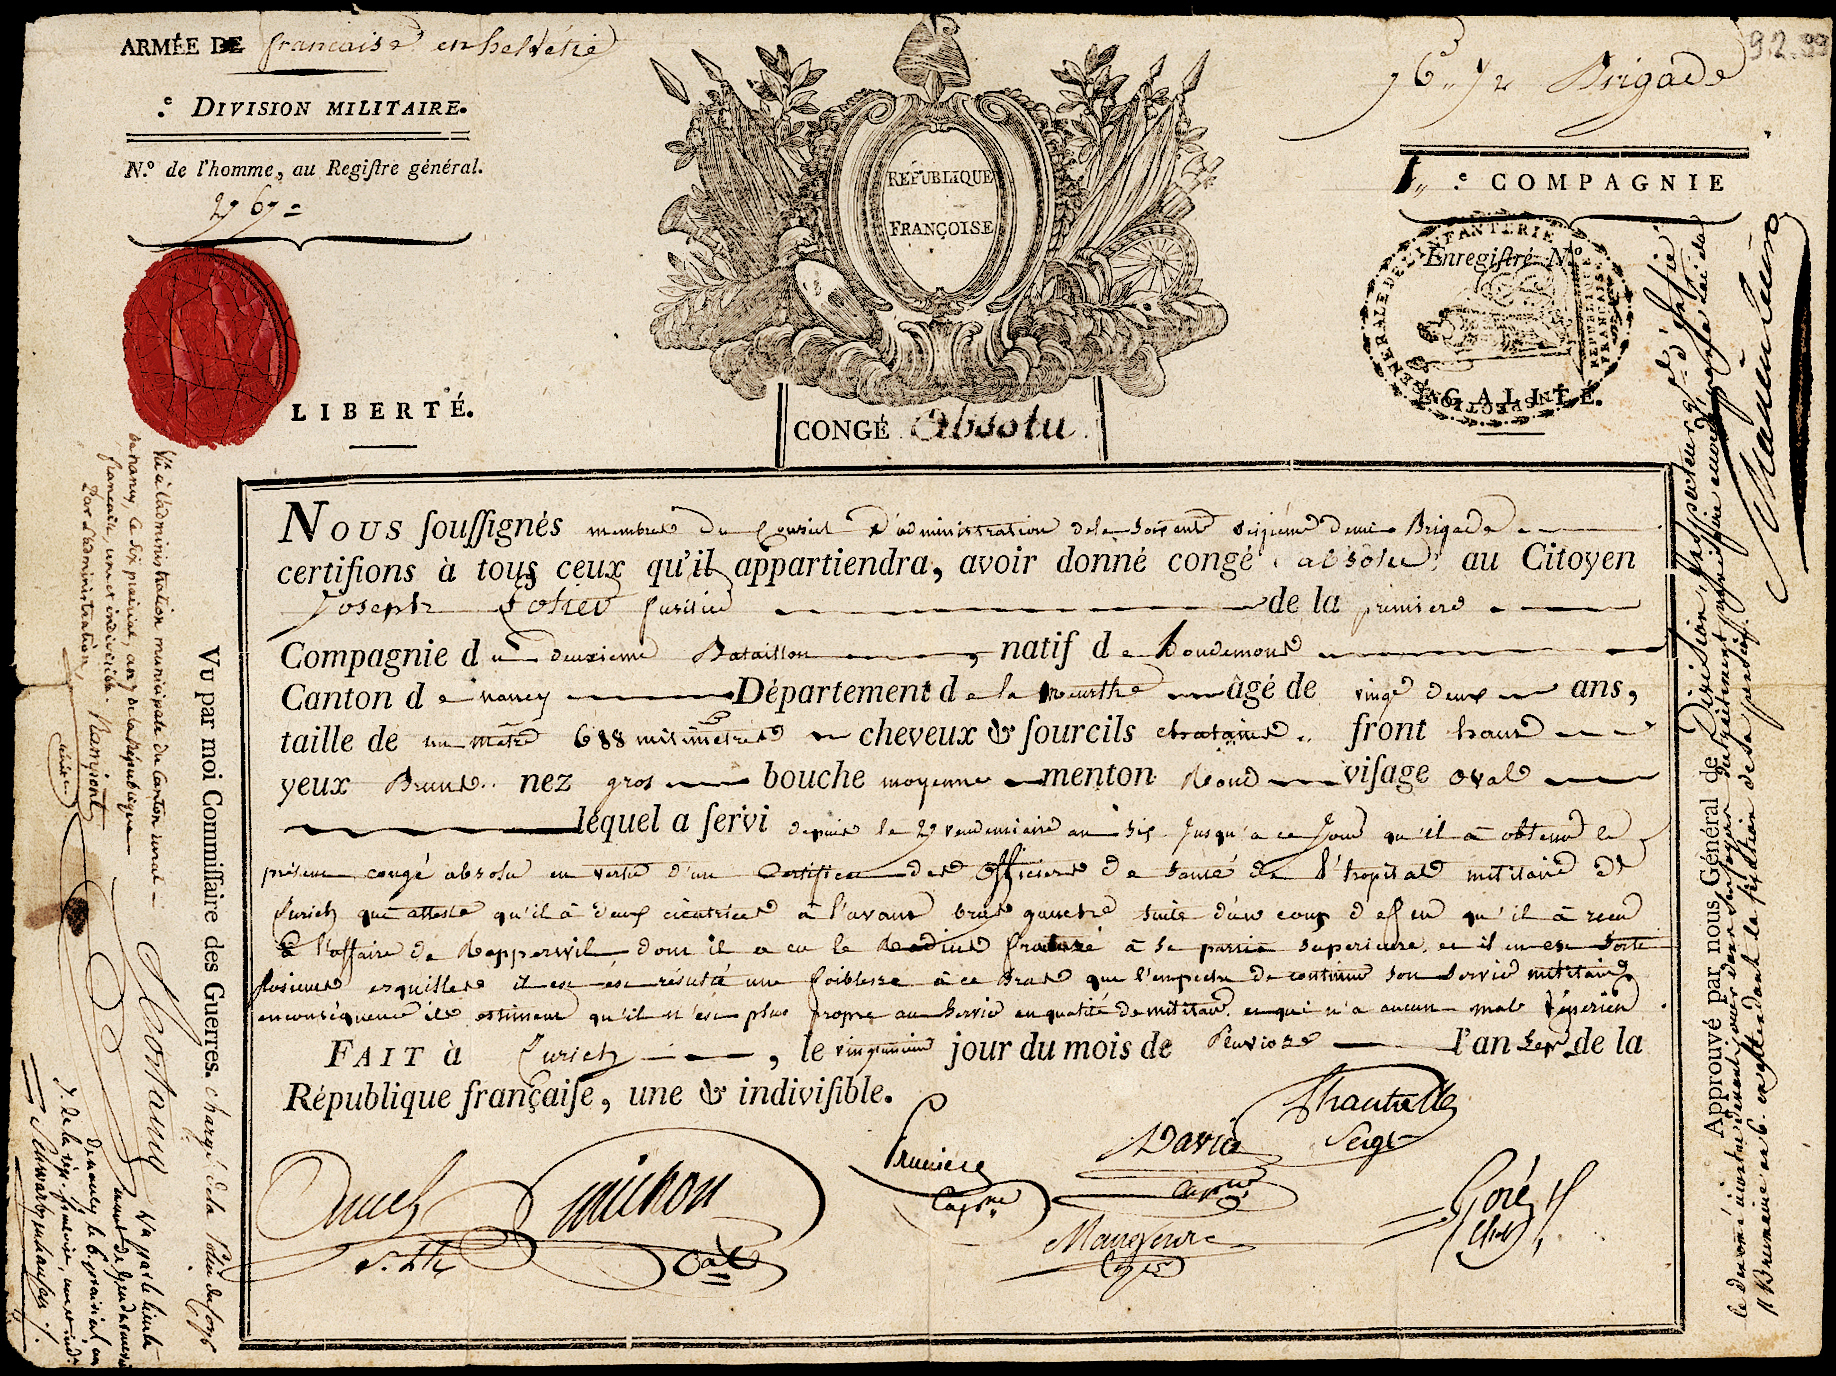 ARMÉE DE française en helvétie
.e DIVISION MILITAIRE.
N.º de l'homme, au Regiſtre général.
2767=
LIBERTÉ.
RÉPUBLIQUE
FRANÇOISE
CONGÉ Absolu
76.e 1/2 Brigade
92.99
1,, .e COMPAGNIE
Enregiſtré N.º
INSPECTION GENERALE DE L'INFANTERIE
REPUBLIQUE
FRANCAISE
EGALITÉ.
NOUS ſouſſignés membres du Conseil d'administration de la soixante seizieme demie Brigade
certifions à tous ceux qu'il appartiendra, avoir donné congé absolu au Citoyen
Joseph fusilier de la premiere
Compagnie du deuxieme Bataillon, natif de houdemont
Canton de nancy Département de la meurthe âgé de vingt deux ans,
taille de un mètre 688 milimetres cheveux & ſourcils chatains front haut
yeux Bruns nez gros bouche moyenne menton Rond viſage oval
lequel a ſervi depuis le 29 vendemiaire an six Jusqu'a ce Jour qu'il a obtenu le
présent congé absolu en vertu d'un Certificat des officiers de santé de l'hopital militaire de
Zurich qui atteste qu'il à deux cicatrices a l'avant bras gauche suite d'un coup de feu qu'il à recu
à l'affaire de Rapperwil dont il a eu le Radius fracturé à sa partie superieure, et il en est sorti
plusieurs esquilles il en est résulté une foiblesse à ce Bras qui l'empeche de continuer son service militaire
en conséquence ils estiment qu'il n'est plus propre au service en qualité de militaire et qui n'a aucun mal vénérien
FAIT à Zurich, le vingtunieme jour du mois de Pluviose l'an sept de la
République françaiſe, une & indiviſible.
michon
Prunière
Cap.ne
David
Cap.ne
Sergt
Goré
Vu par moi Commiſſaire des Guerres. chargé de la Police du Corps
Vu à l'administration municipale du Canton rural
de nancy, ce six prairial, an 7 de la République
francaise, une et indivisible.
Par L'administration,
Vu par le lieute-
nant de Gendarmerie
de nancy le 6 prairial, an
7 de la rép. francaise, une et ind.
Approuvé par nous Général de Division, Inspecteur g.al d'Infie